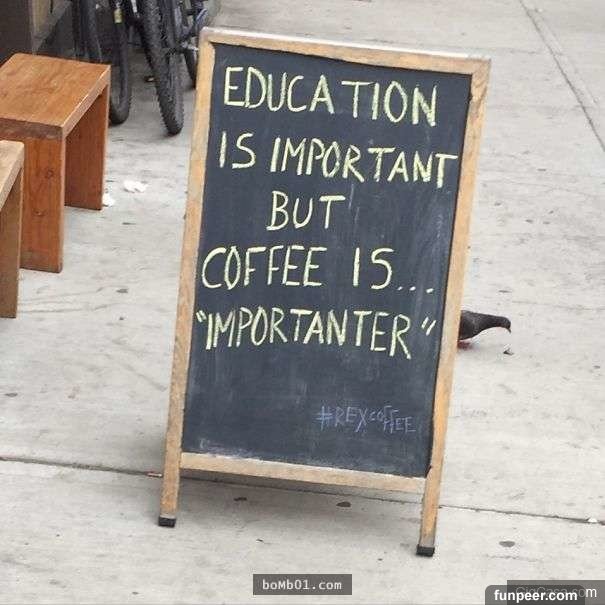 EDUCATION
IS IMPORTANT
BUT
COFFEE IS...
"IMPORTANTER"
#REXCOFFEE
boMb01.com
funpeer.com